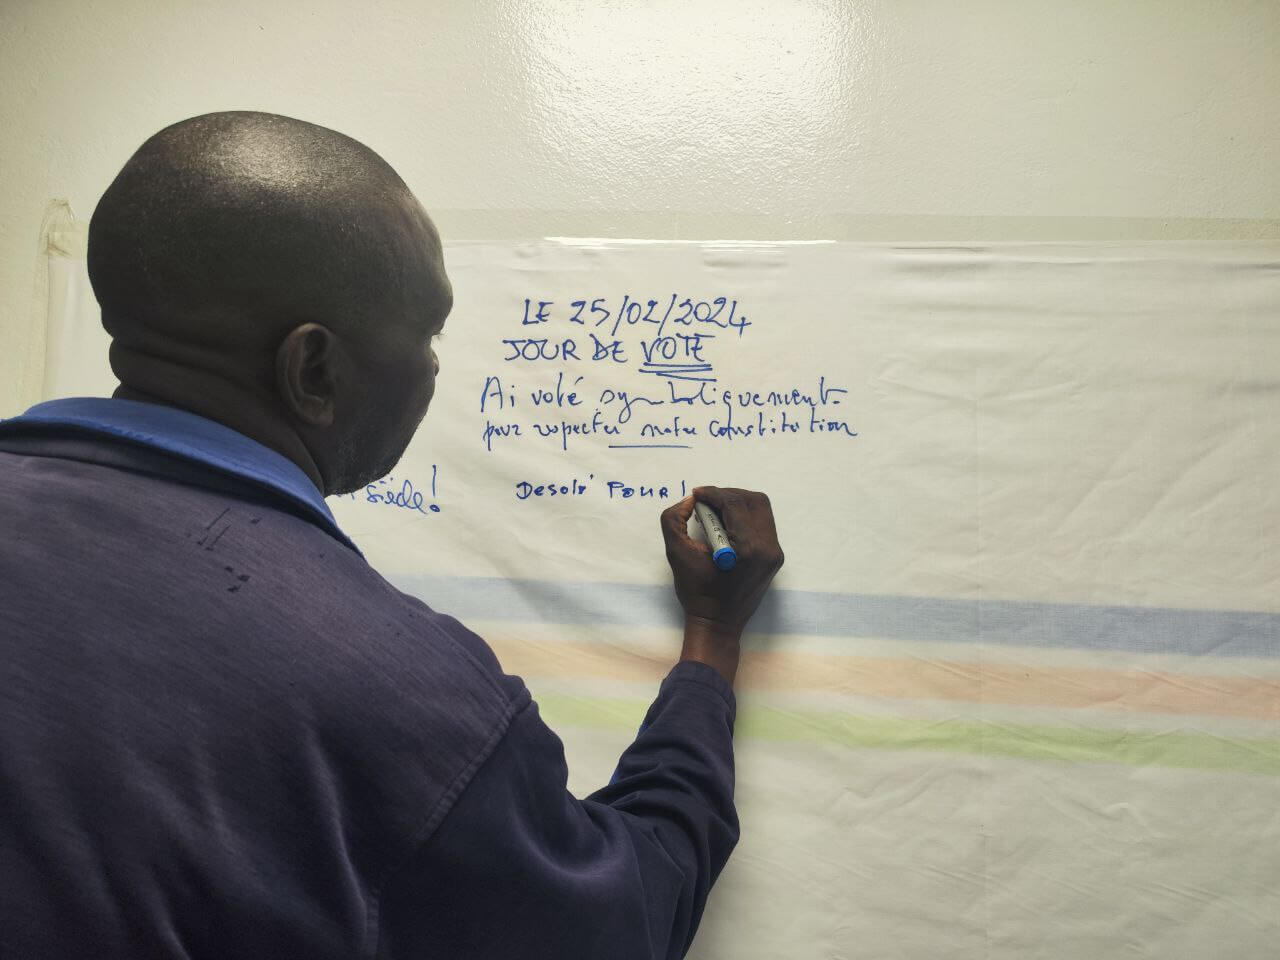 LE 25/02/2024
JOUR DE VOTE
Ai voté symboliquement
pour respecter notre constitution
siècle!
Desolé POUR